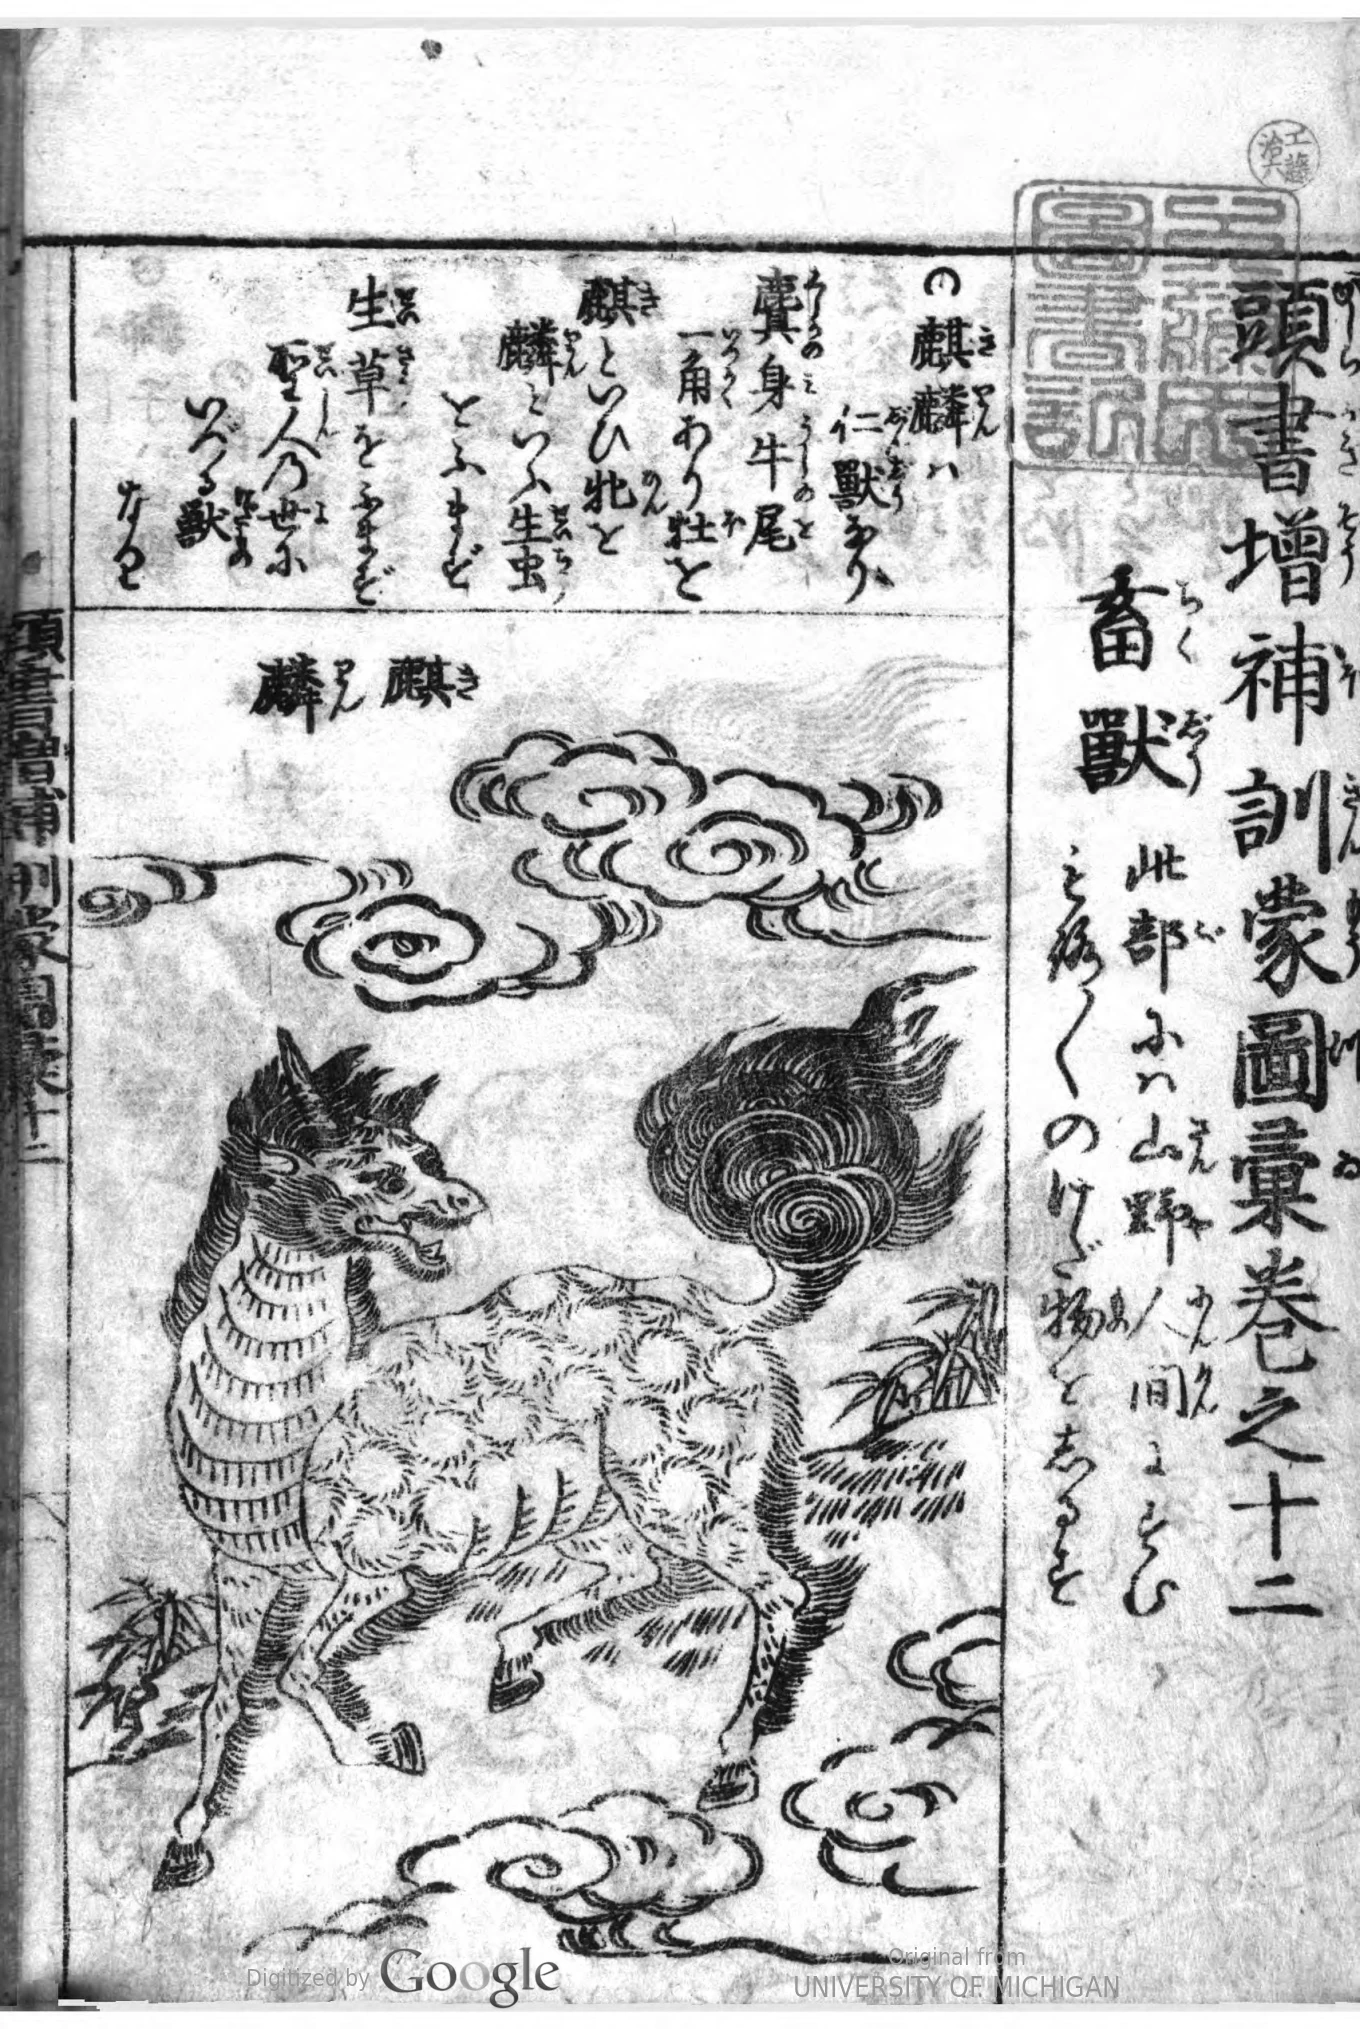 頭書増補訓蒙圖彙巻之十二
畜獸
此部にハ山野人間にすむ
もろ〳〵のけだ物をしるす
麒麟ハ
仁獸なり
麕身牛尾
一角あり牡を
麒といひ牝を
麟といふ生虫
をふまず
生草をふまず
聖人乃世に
いづる獸
なり
麒麟
頭書増補訓蒙圖彙十二
工藤
Digitized by Google
Original from
UNIVERSITY OF MICHIGAN